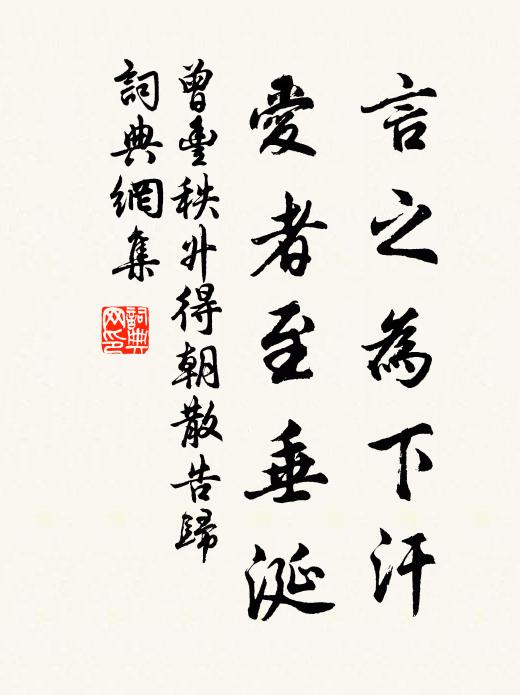 言之為下汗
愛者至垂涎
曾豐秩升得朝散告歸
詞典網集
詞典
网印